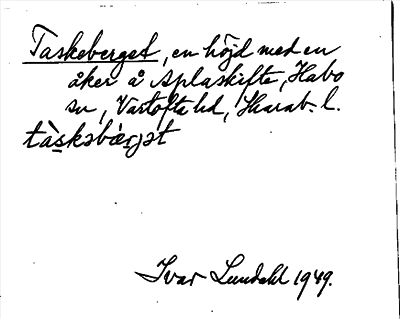 Taskeberget, en höjd med en
åker å Aplaskifte, Habo
sn, Vartofta hd, Skarab. l.
tàskəbær̀jət
Ivar Lundahl 1949.